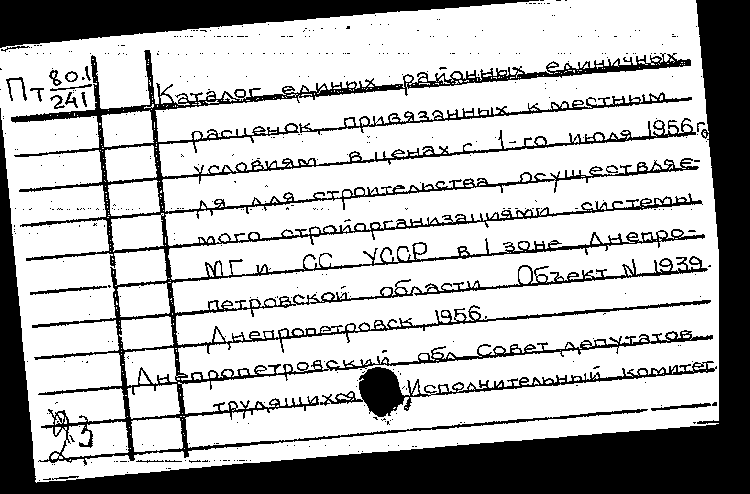 Пт 80.1/241
Каталог единых районных единичных
расценок, привязанных к местным
условиям в ценах с 1-го июля 1956г,
дя для строительства, осуществляе-
мого стройорганизациями системы
МГи СС УССР в 1 зоне Днепро-
петровской области Объект N 1939.
Днепропетровск, 1956.
Днепропетровский обл Совет депутатов
трудящихся. Исполнительный комитет
23